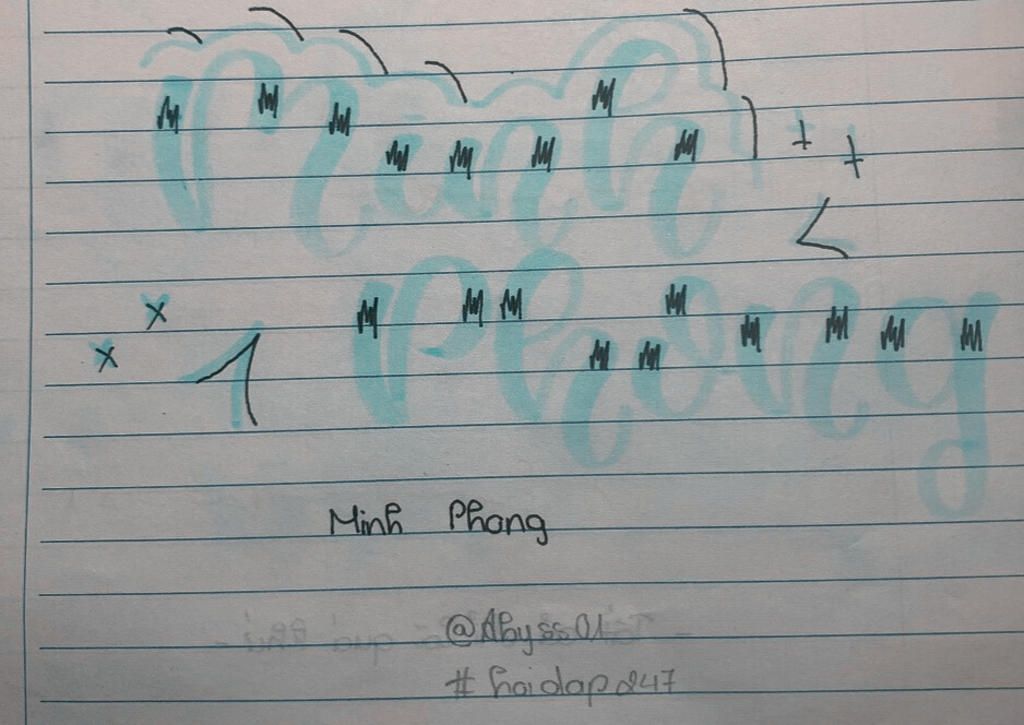 Minh
Phong
Minh Phong
@Abyss01
#hoidap247